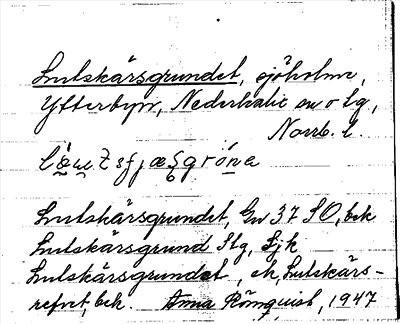 Lutskärsgrundet, sjöholme,
Ytterbyn, Nederkalix sn o tg,
Norrb. l.
Lutskärsgrundet, Gw 37 SO, bek
Lutskärsgrund Stg, Sjk
Lutskärsgrundet, ek, Lutskärs-
revet, bek. Anna Rönquist, 1947